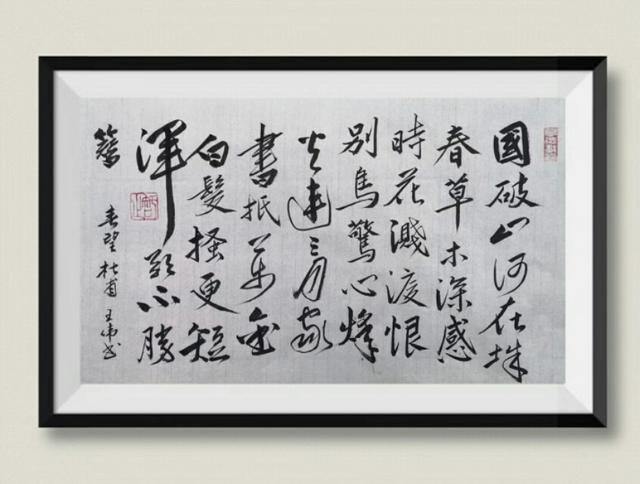 國破山河在城
春草木深感
時花濺淚恨
別鳥驚心烽
火連三月家
書抵萬金
白髮搔更短
渾欲不勝
簪
春望 杜甫 王偉书